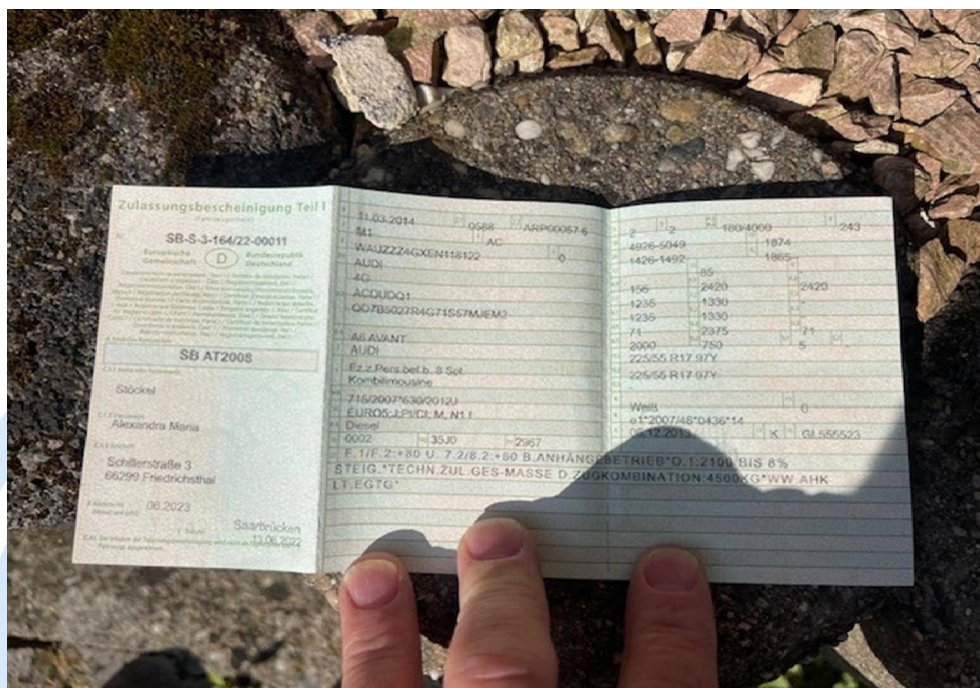 Zulassungsbescheinigung Teil I
(Fahrzeugschein)
SB-S-3-164/22-00011
Europäische Gemeinschaft
D
Bundesrepublik Deutschland
SB AT2008
Stöckel
Alexandra Maria
Schillerstraße 3
66299 Friedrichsthal
06.2023
Saarbrücken
13.06.2022
11.03.2014 0588
M1 AC
WAUZZZ4GXEN118122 0
AUDI
4G
ACDUDQ1
A6 AVANT
AUDI
Fz.z.Pers.bef.b. 8 Spl.
Kombilimousine
715/2007*630/2012J
Diesel
0002 35J0 2967
2 2 180/4000 243
4926-5049 1874
1426-1492 1865-
85
156 2420 2420
1235 1330
1235 1330
71 2375 71
2000 750 5 -
225/55 R17 97Y
225/55 R17 97Y
Weiß 0
e1*2007/46*0436*14
K GL555523
F.1/F.2:+80 U. 7.2/8.2:+80 B.ANHÄNGEBETRIEB*O.1:2100 BIS 8%
STEIG.*TECHN.ZUL.GES-MASSE D.ZUGKOMBINATION:4500KG*WW.AHK
LT.EGTG*